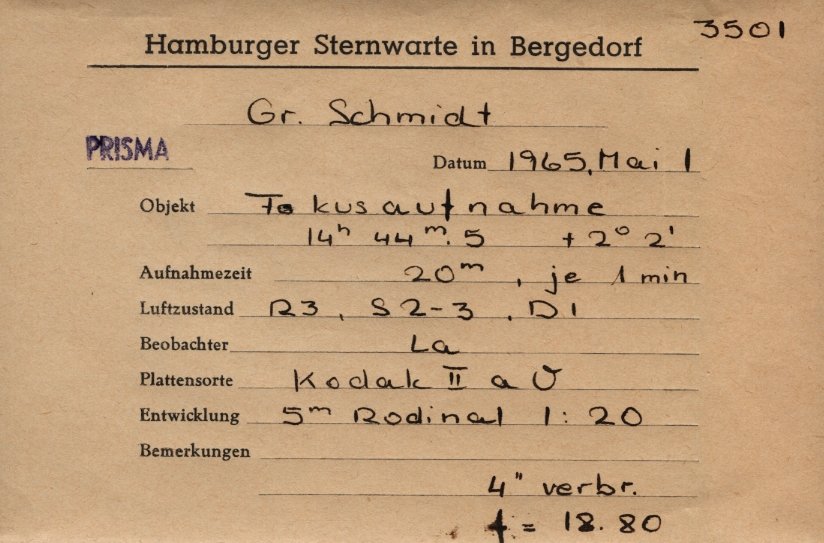 3501
Hamburger Sternwarte in Bergedorf
Gr. Schmidt
PRISMA
Datum 1965, Mai 1
Objekt Fokusaufnahme
14h 44m.5 + 2° 2'
Aufnahmezeit 20m, je 1 min
Luftzustand R3, S2-3, D1
Beobachter La
Plattensorte Kodak II a O
Entwicklung 5m Rodinal 1:20
Bemerkungen
4" verbr.
f = 18.80